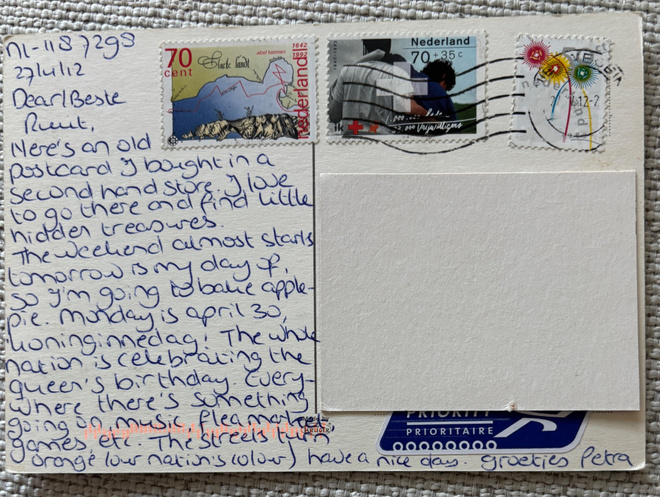 NL-1187298
27/4/12
Dear/Beste
Ruut,
Here's an old
postcard I bought in a
second hand store. I love
to go there and find little
hidden treasures.
The weekend almost starts
tomorrow is my day of,
so I'm going to bake apple-
pie. Monday is april 30,
koninginnedag! The whole
nation is celebrating the
queen's birthday. Every-
where there's something
going on, music, fleamarket,
games, The streets turn
orange (our nation's colour) have a nice day. groetjes Petra
70
cent
abel tasman
1642
1992
nederland
Nederland
70+35c
1.000.000 leden
vrijwilligers
PRIORITY
PRIORITAIRE